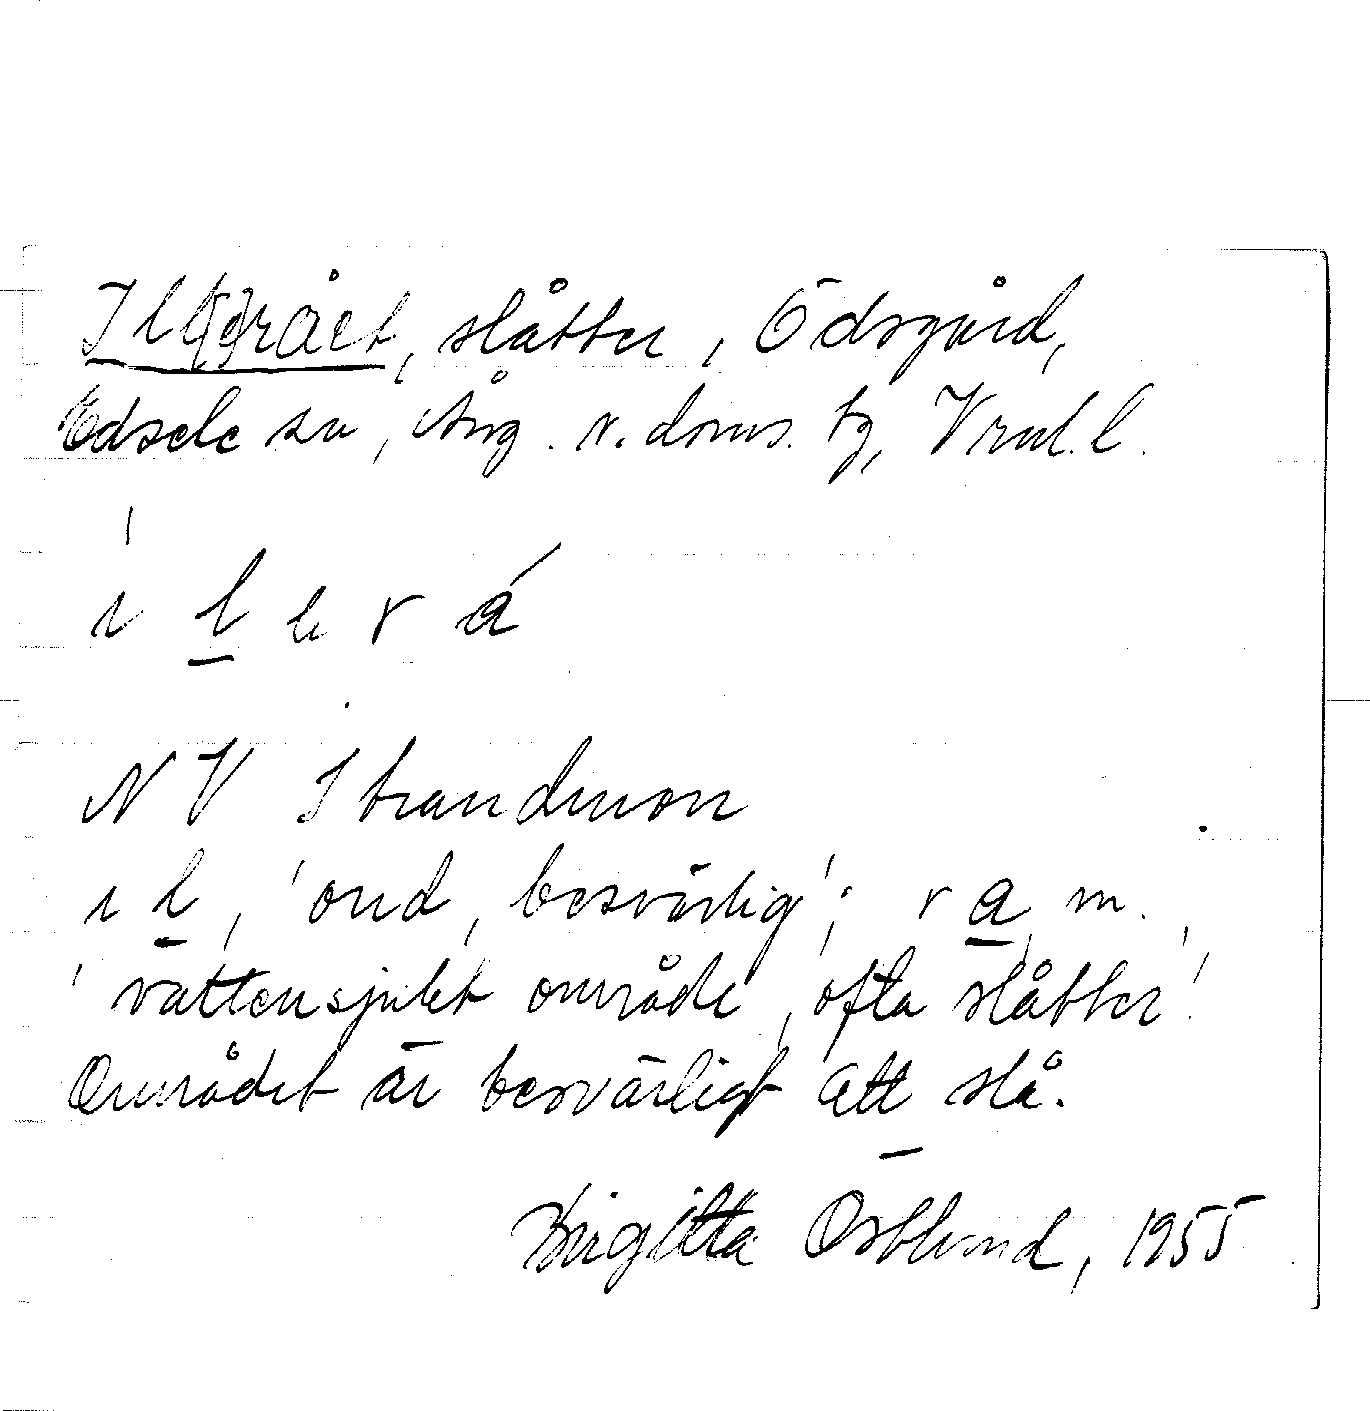 Ill(e)rået, slåtter, Ödsgård,
Edsele sn, Ång. v. doms. tg, Vrml. l.
i l e r á
NV Strandmon
il, 'ond, besvärlig'; ra, m.,
'vattensjukt område, ofta slåtter'.
Området är besvärligt att slå.
Birgitta Östlund, 1955